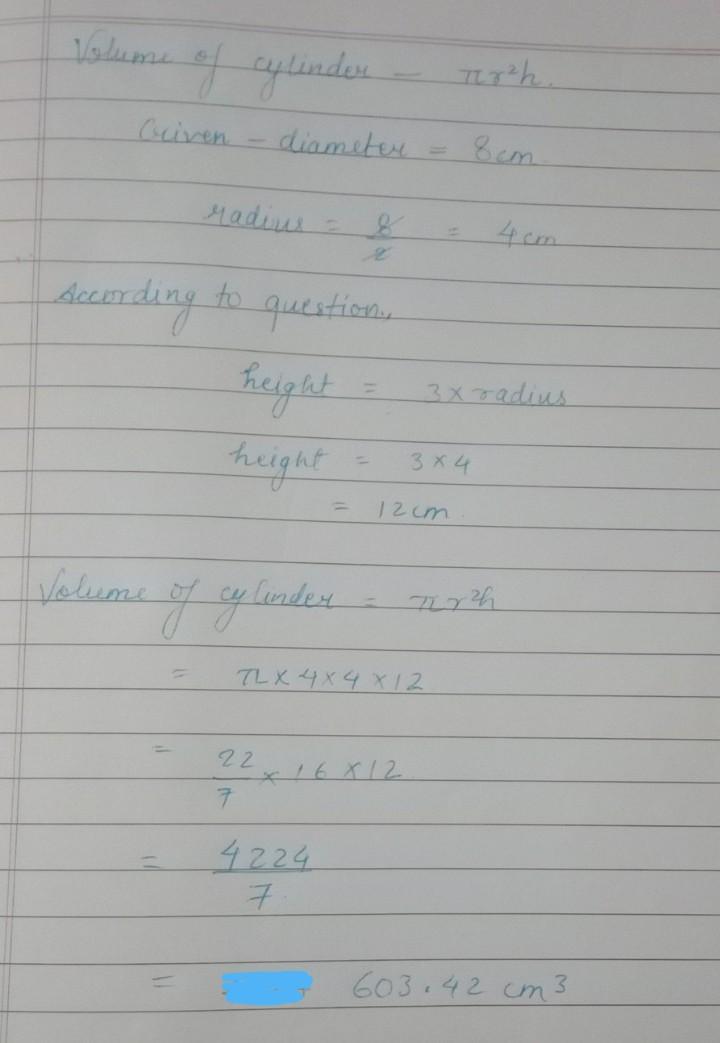 Volume of cylinder – πr²h.
Given – diameter = 8cm.
radius = 8/2 = 4cm
According to question,
height = 3 × radius
height = 3 × 4
= 12cm.
Volume of cylinder = πr²h
= π × 4 × 4 × 12
= 22/7 × 16 × 12
= 4224/7.
= 603.42 cm³